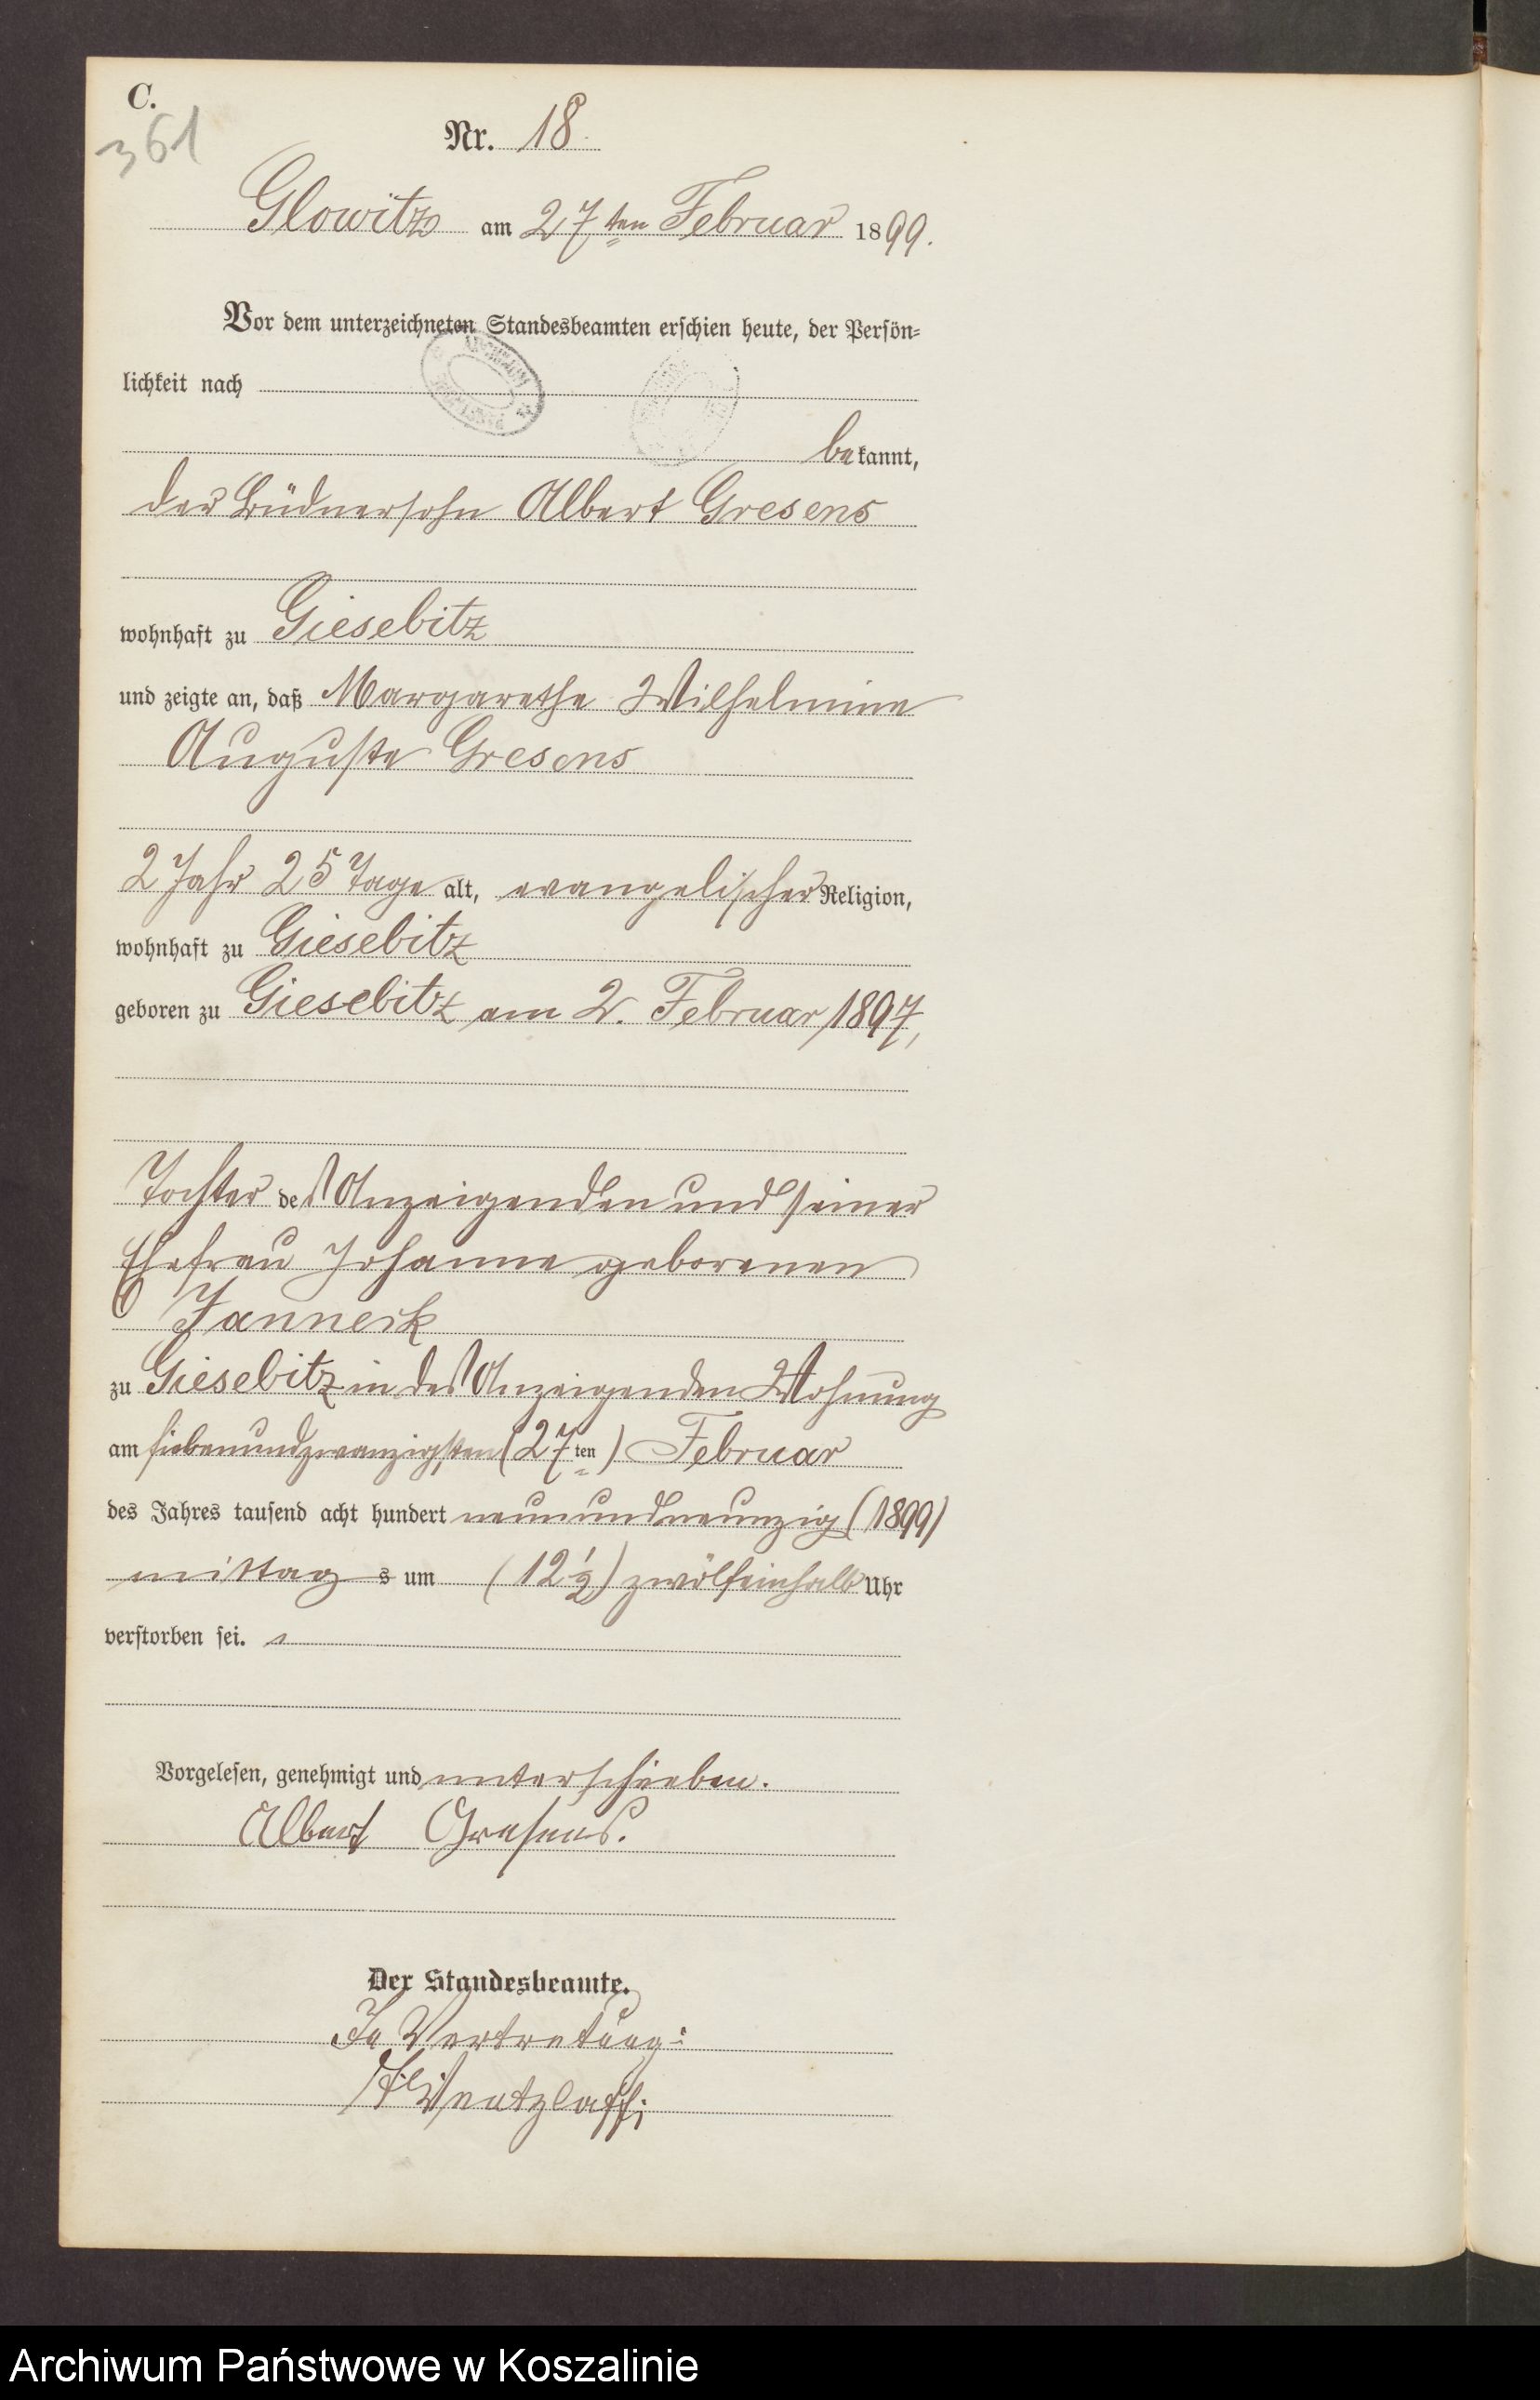 C.
361
Nr. 18.
Glowitz am 27ten Februar 1899.
Vor dem unterzeichneten Standesbeamten erschien heute, der Persön=
lichkeit nach
bekannt,
der Büdnersohn Albert Gresens
wohnhaft zu Giesebitz
und zeigte an, daß Margarethe Wilhelmine
Auguste Gresens
2 Jahr 25 Tage alt, evangelischer Religion,
wohnhaft zu Giesebitz
geboren zu Giesebitz am 2. Februar 1897,
Tochter des Anzeigenden und seiner
Ehefrau Johanne geborenen
Janneck
zu Giesebitz in des Anzeigenden Wohnung
am siebenundzwanzigsten (27ten) Februar
des Jahres tausend acht hundert neunundneunzig (1899)
mittag s um (12 1/2) zwölfeinhalb Uhr
verstorben sei.
Vorgelesen, genehmigt und unterschieben.
Albert Gresens.
Der Standesbeamte.
In Vertretung:
Wentzlaff;
Archiwum Państwowe w Koszalinie